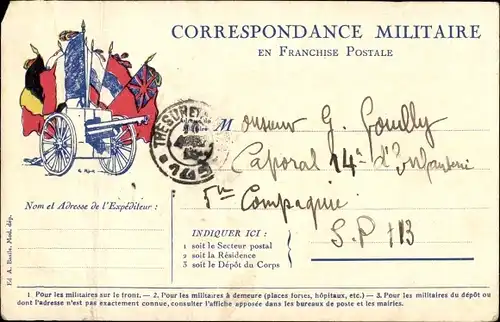 CORRESPONDANCE MILITAIRE
EN FRANCHISE POSTALE
TRÉSOR ET
Monsieur G. Gouilly
Caporal 14e d'Infanterie
5me Compagnie
S.P 113
Nom et Adresse de l'Expéditeur :
INDIQUER ICI :
1 soit le Secteur postal
2 soit la Résidence
3 soit le Dépôt du Corps
Ed A. Basile. Mod. dép.
1. Pour les militaires sur le front. — 2. Pour les militaires à demeure (places fortes, hôpitaux, etc.) — 3. Pour les militaires du dépôt ou
dont l'adresse n'est pas exactement connue, consulter l'affiche apposée dans les bureaux de poste et les mairies.